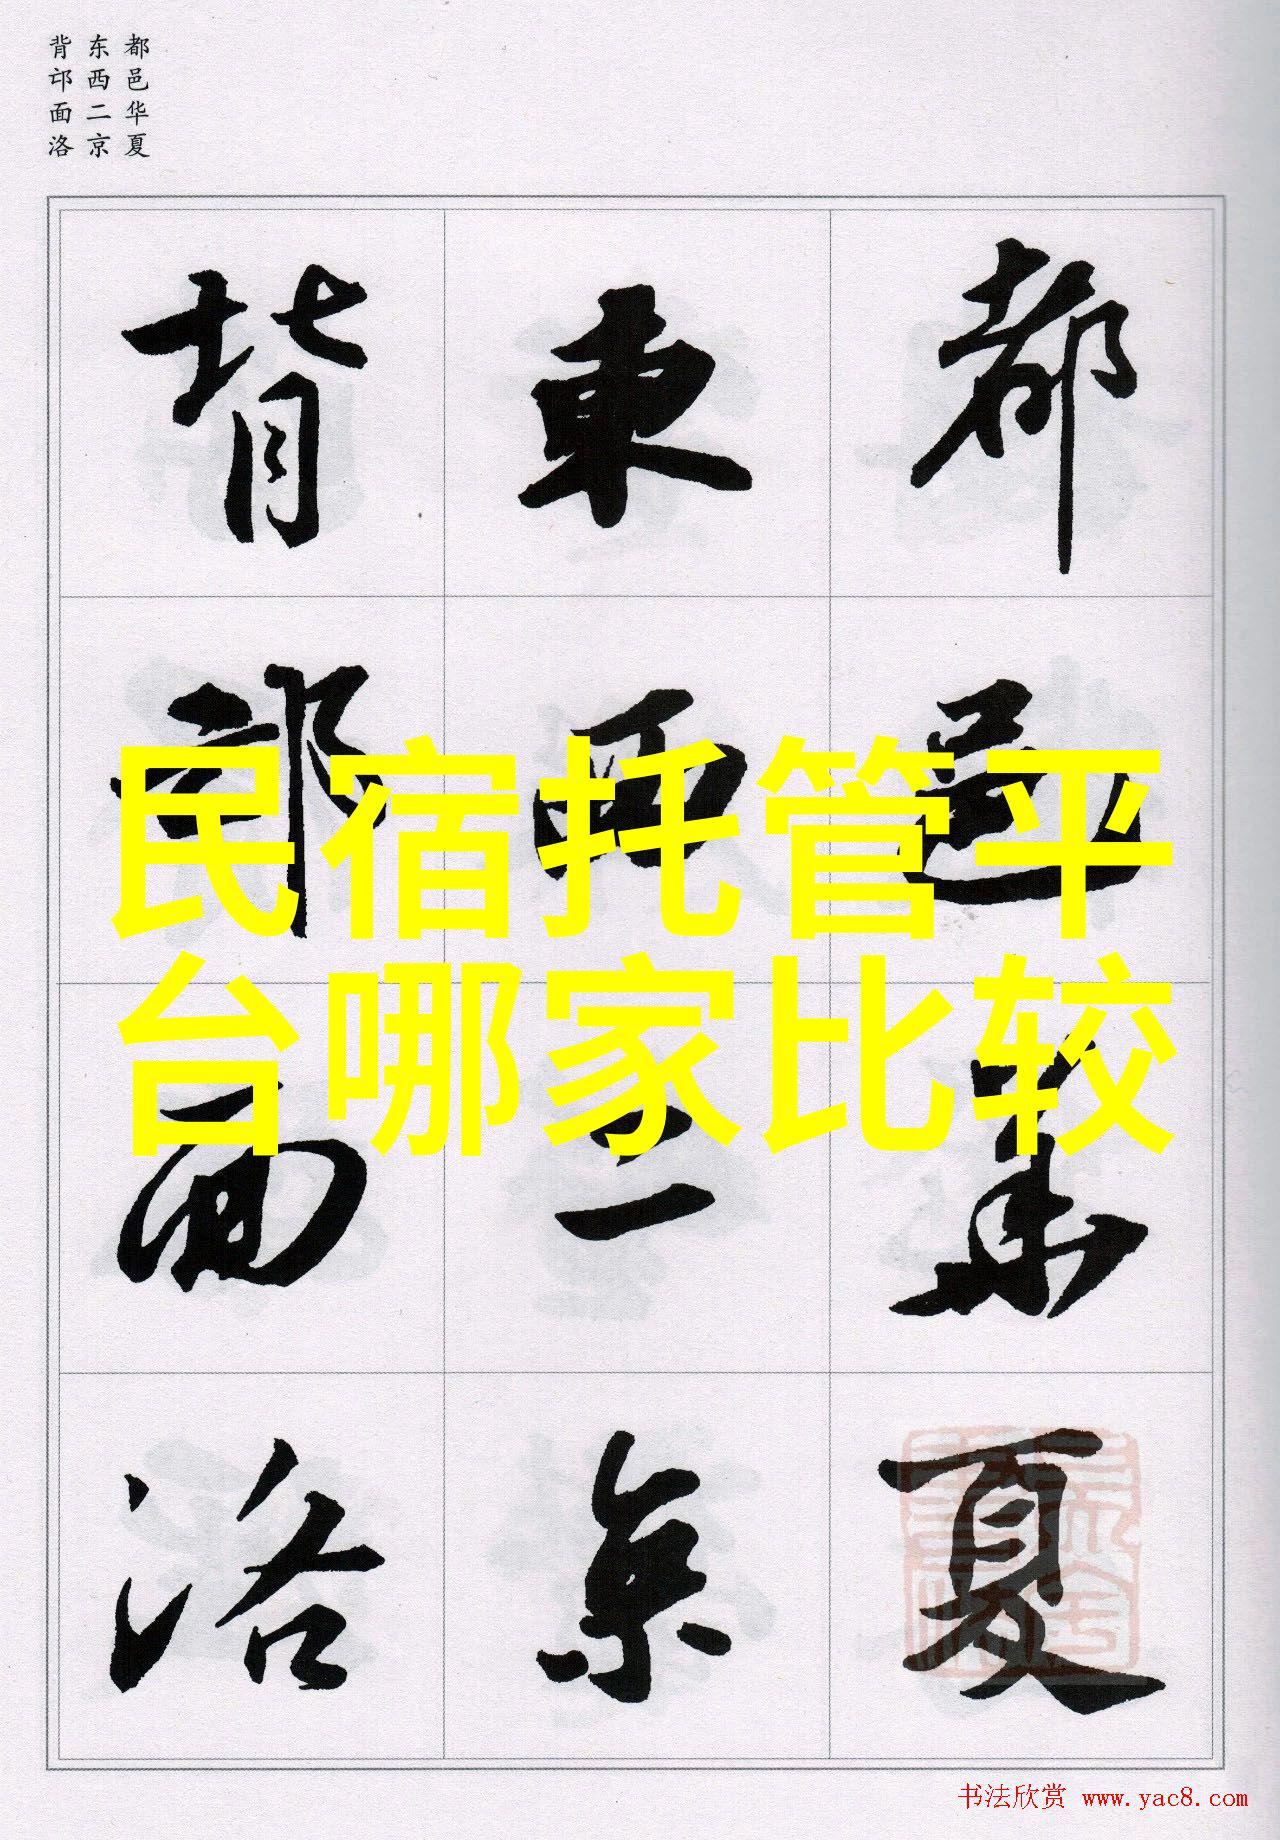 都邑华夏
东西二京
背邙面洛
都邑華夏
東西二京
背邙面洛
民宿托管平
台哪家比较
书法欣赏 www.yac8.com